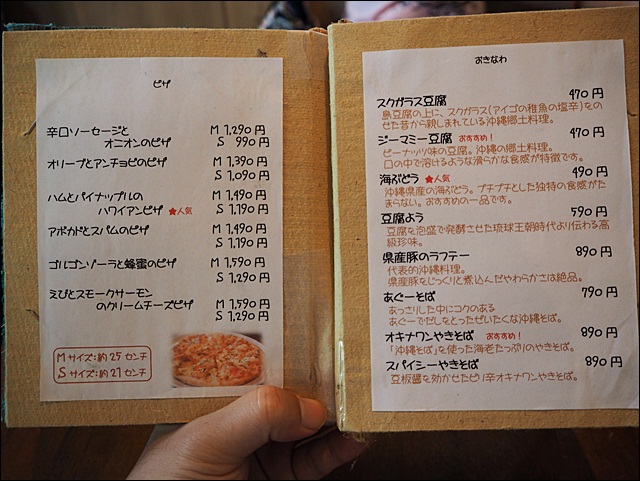 ピザ
辛口ソーセージと
オニオンのピザ
M 1,290円
S 990円
オリーブとアンチョビのピザ
M 1,390円
S 1,090円
ハムとパイナップルの
ハワイアンピザ ★人気
M 1,490円
S 1,190円
アボカドとスパムのピザ
M 1,490円
S 1,190円
ゴルゴンゾーラと蜂蜜のピザ
M 1,590円
S 1,290円
えびとスモークサーモン
のクリームチーズピザ
M 1,590円
S 1,290円
Mサイズ:約25センチ
Sサイズ:約21センチ
おきなわ
スクガラス豆腐 470円
島豆腐の上に、スクガラス(アイゴの稚魚の塩辛)をの
せた昔から親しまれている沖縄郷土料理。
ジーマミー豆腐 おすすめ! 470円
ピーナッツ味の豆腐。沖縄の郷土料理。
口の中で溶けるような滑らかな食感が特徴です。
海ぶどう ★人気 490円
沖縄県産の海ぶどう。プチプチとした独特の食感がた
まらない。おすすめの一品です。
豆腐よう 590円
豆腐を泡盛で発酵させた琉球王朝時代より伝わる高
級珍味。
県産豚のラフテー 890円
代表的沖縄料理。
県産豚をじっくりと煮込んだやわらかさは絶品。
あぐーそば 790円
あっさりした中にコクのある
あぐーでだしをとったぜいたくな沖縄そば。
オキナワンやきそば おすすめ! 890円
「沖縄そば」を使った海老たっぷりのやきそば。
スパイシーやきそば 890円
豆板醤を効かせたピリ辛オキナワンやきそば。